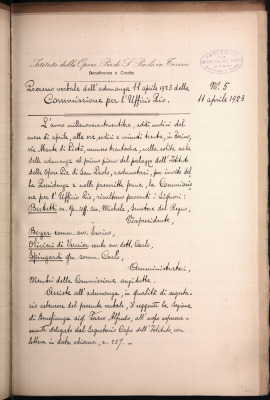 Istituto delle Opere Pie di S. Paolo in Torino
Beneficenza e Credito
Processo verbale dell'adunanza 11 aprile 1923 della
Commissione per l'Ufficio Pio.
N.° 5
11 aprile 1923
L'anno millenoventoventitre, addì undici del
mese di aprile, alle ore sedici e minuti trenta, in Torino,
via Monte di Pietà, numero trentadue, nella solita sala
delle adunanze al primo piano del palazzo dell'Istituto
delle Opere Pie di San Paolo, radunatasi, per invito del
la Presidenza e nelle premesse forme, la Commissio
ne per l'Ufficio Pio, risultano presenti i Signori:
Bertetti Michele, Senatore del Regno,
Vicepresidente,
Beyer comm. avv. Enrico,
Olivieri di Vernier conte avv. dott. Carlo,
comm. Carlo,
Amministratori,
Membri della Commissione anzidetta.
Assiste all'adunanza, in qualità di segreta
rio estensore del presente verbale, il reggente la sezione
di Beneficenza sig. Alfredo, all'uopo espressa
mente delegato dal Segretario Capo dell'Istituto, con
lettera in data odierna, n. 357. -